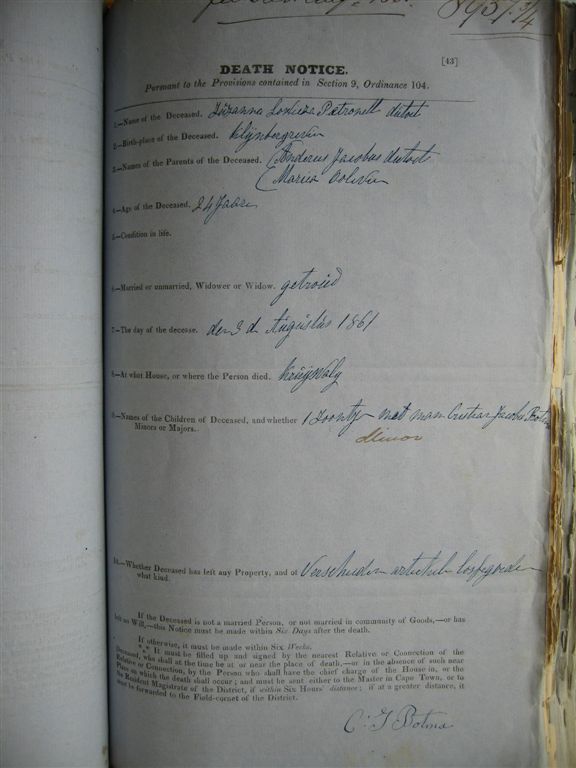 8957 3/4
[43]
DEATH NOTICE.
Pursuant to the Provisions contained in Section 9, Ordinance 104.
1.—Name of the Deceased. Susanna Petronell dutoit
2.—Birth-place of the Deceased. klijnbergrivier
3.—Names of the Parents of the Deceased. Andrius Jacobus dutoit
Maria
4.—Age of the Deceased. 24 Jaare
5.—Condition in life.
6.—Married or unmarried, Widower or Widow. getroud
7.—The day of the decease. den 3 d Augustus 1861
8.—At what House, or where the Person died.
9.—Names of the Children of Deceased, and whether 1 Zoontje met nam Cristian Jacobus Botma
Minors or Majors.
Minor
10.—Whether Deceased has left any Property, and of Verscheiden artiekele losgoederen
what kind.
If the Deceased is not a married Person, or not married in community of Goods,—or has
left no Will,—this Notice must be made within Six Days after the death.
If otherwise, it must be made within Six Weeks.
*** It must be filled up and signed by the nearest Relative or Connection of the
Deceased, who shall at the time be at or near the place of death,—or in the absence of such near
Relative or Connection, by the Person who shall have the chief charge of the House in, or the
Place on which the death shall occur; and must be sent either to the Master in Cape Town, or to
the Resident Magistrate of the District, if within Six Hours' distance; if at a greater distance, it
must be forwarded to the Field-cornet of the District.
C: J Botma